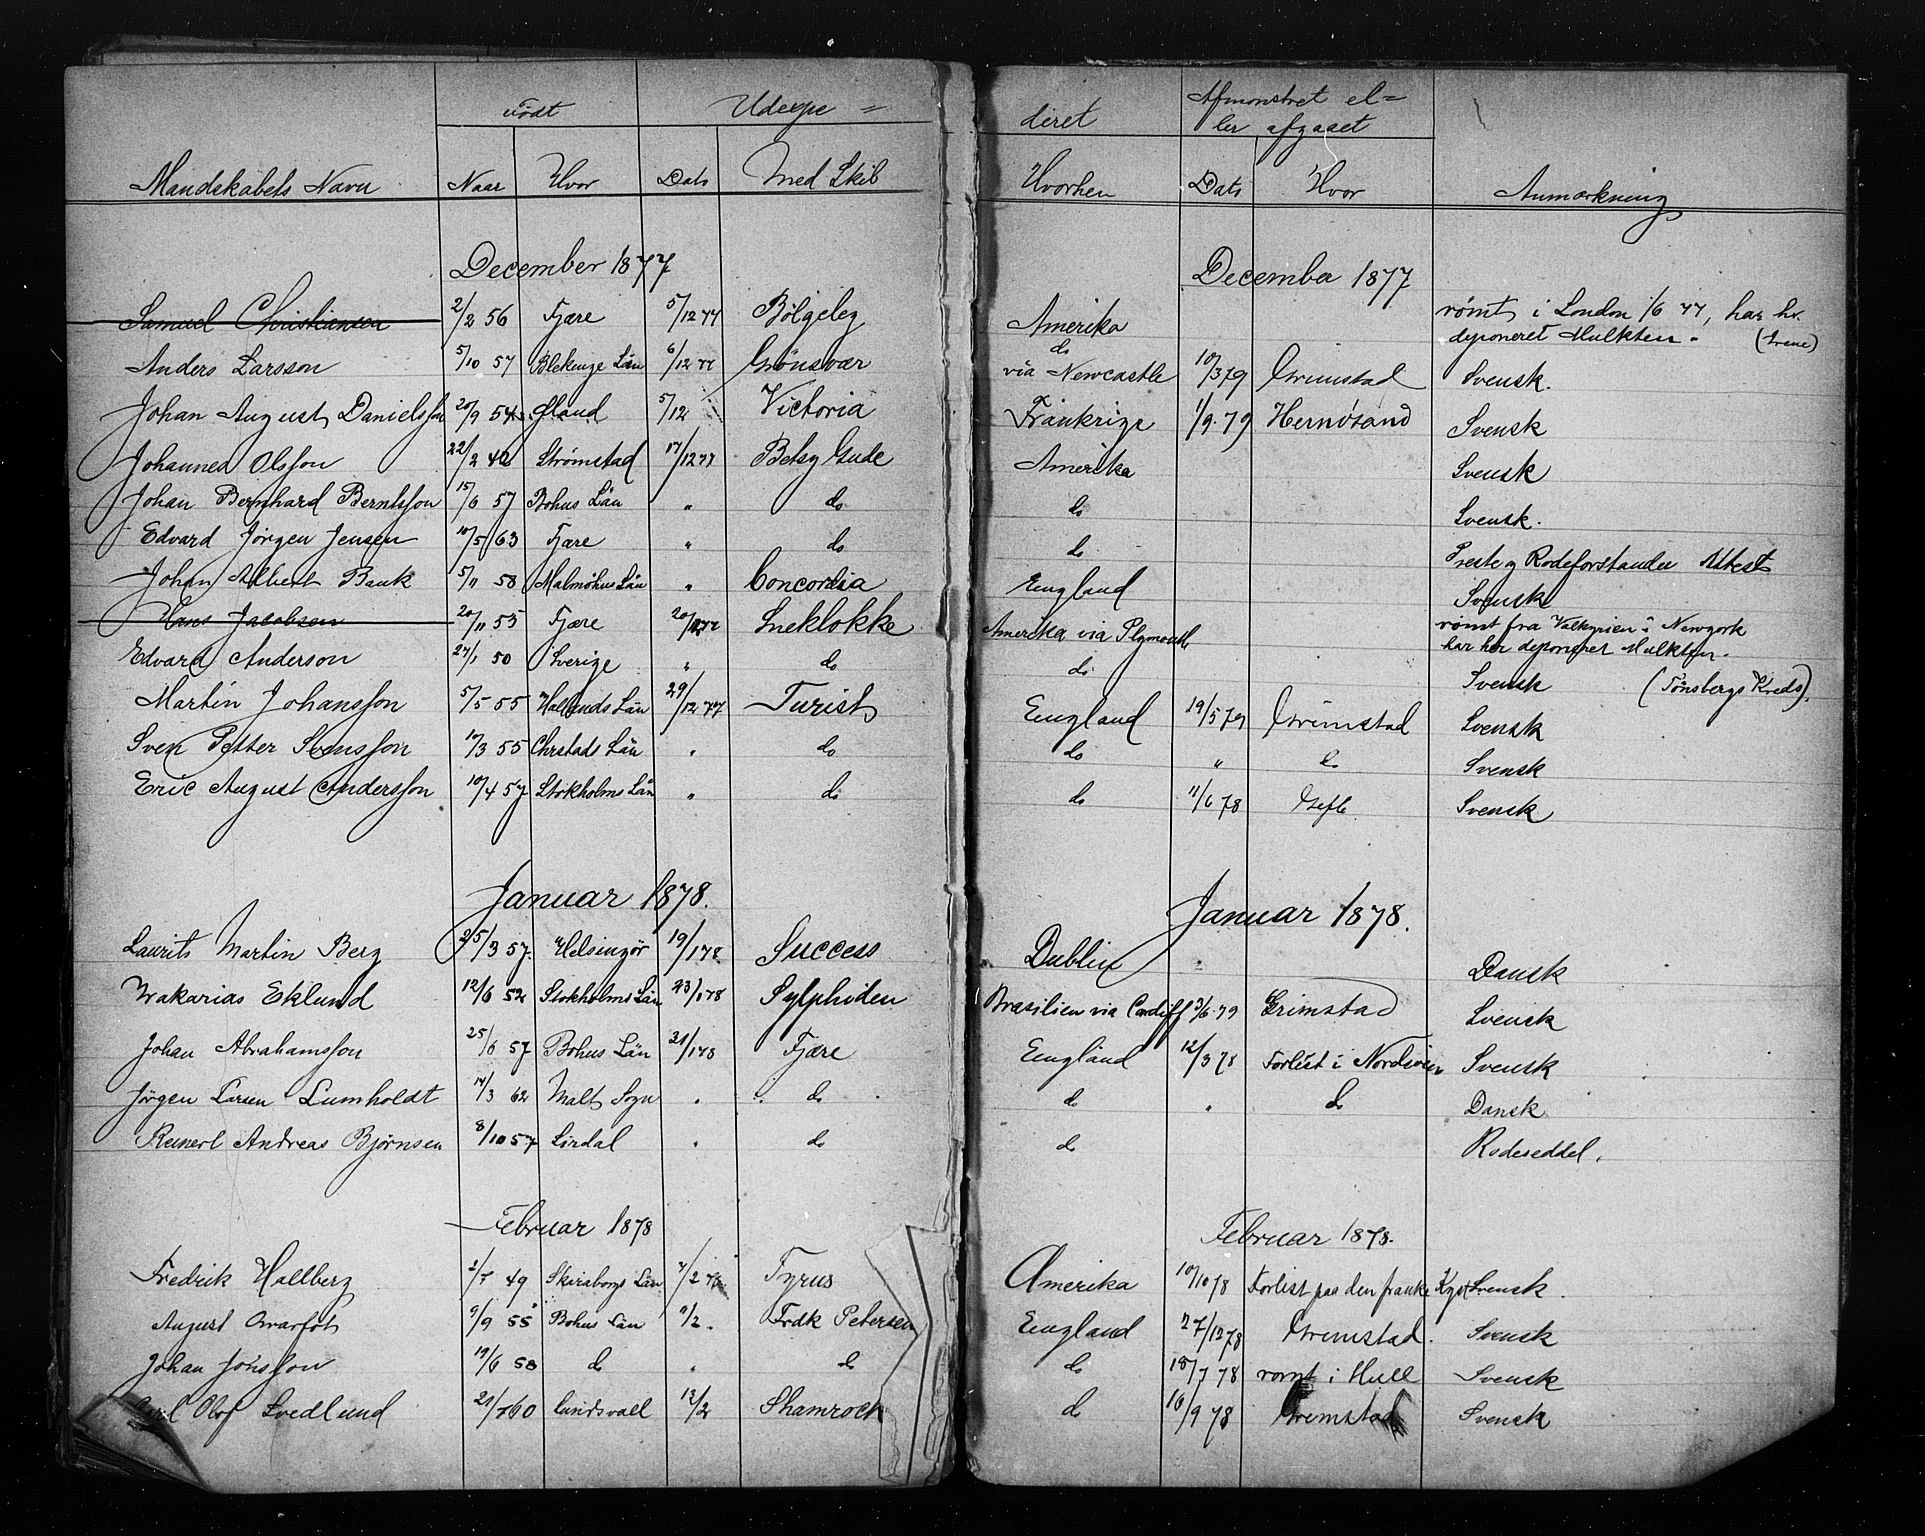 Født Udexpe=
Mandskabets Navn Naar Hvor Dato Med Skib
December 1877
Samuel Christiansen 2/2 56 Fjære 5/12 77 Bølgeleg
Anders Larsson 5/10 57 Blekinge Län 6/12 77 Grønsvær
Johan August Danielsson 20/9 54 Øland 5/12 Victoria
Johannes Olsson 22/2 42 Strømstad 17/12 77 Betsy Gude
Johan Bernhard Berntsson 15/6 57 Bohus Län " do
Edvard Jørgen Jensen 10/5 63 Fjære " do
Johan Albert Bank 5/11 58 Malmöhus Län " Concordia
Hans Jacobsen 20/11 55 Fjære 20/12 77 Sneklokke
Edvard Anderson 27/1 50 Sverige " do
Martin Johansson 5/5 55 Hallands Län 29/12 77 Turist
Sven Petter Svensson 17/3 55 Chrstads Län " do
Eric August Andersson 10/4 57 Stokholms Län " do
Januar 1878.
Laurits Martin Berg 25/3 57. Helsingör 19/1 78 Success
Zrakarias Eklund 12/6 52 Stokholms Län 23/1 78 Sylphiden
Johan Abrahamsson 25/6 57 Bohus Län 31/1 78 Fjære
Jörgen Larsen Lumholdt 14/3 62 Malt Sogn " do
Reinert Andreas Bjørnsen 8/10 57 Lirdal " do
Februar 1878
Fredrik Hallberg 2/7 49 Skaraborgs Län 7/2 78 Tyrus
August Qvarfot 9/9 55 Bohus Län 11/2 . Frdk Petersen
Johan Jönsson 19/6 58 do " do
Carl Olof Svedlund 21/7 60 Sundsvall 13/2 Shamrock
deret Afmønstret el=
ler afgaaet
Hvorhen Dato Hvor Anmærkning
December 1877
Amerika rømt i London 1/6 77, har hr.
deponeret Mulkten. (Irene)
do
via Newcastle 10/3 79 Grimstad Svensk.
Frankrige 1/9. 79 Hernøsand Svensk
Amerika Svensk
do Svensk.
do Preste og Rodeforstander Attest
England Svensk
Amerika via Plymouth rømt fra Valkyrien i Newyork
har her deponeret Mulkten.
do Svensk (Tønsbergs Kreds).
England 19/5 79 Grimstad Svensk
do " do Svensk
do 11/6 78 Gefle Svensk
Januar 1878.
Dublin Dansk
Brasilien via Cardiff 3/6. 79 Grimstad Svensk
England 12/3 78 Forlist i Nordsøen Svensk
do " do Dansk
do Rodeseddel.
Februar 1878.
Amerika 10/10 78 Forlist paa den franke Kyst Svensk.
England 27/12 78 Grimstad. Svensk
do 18/7 78 rømt i Hull Svensk
do 16/9 78 Grimstad Svensk